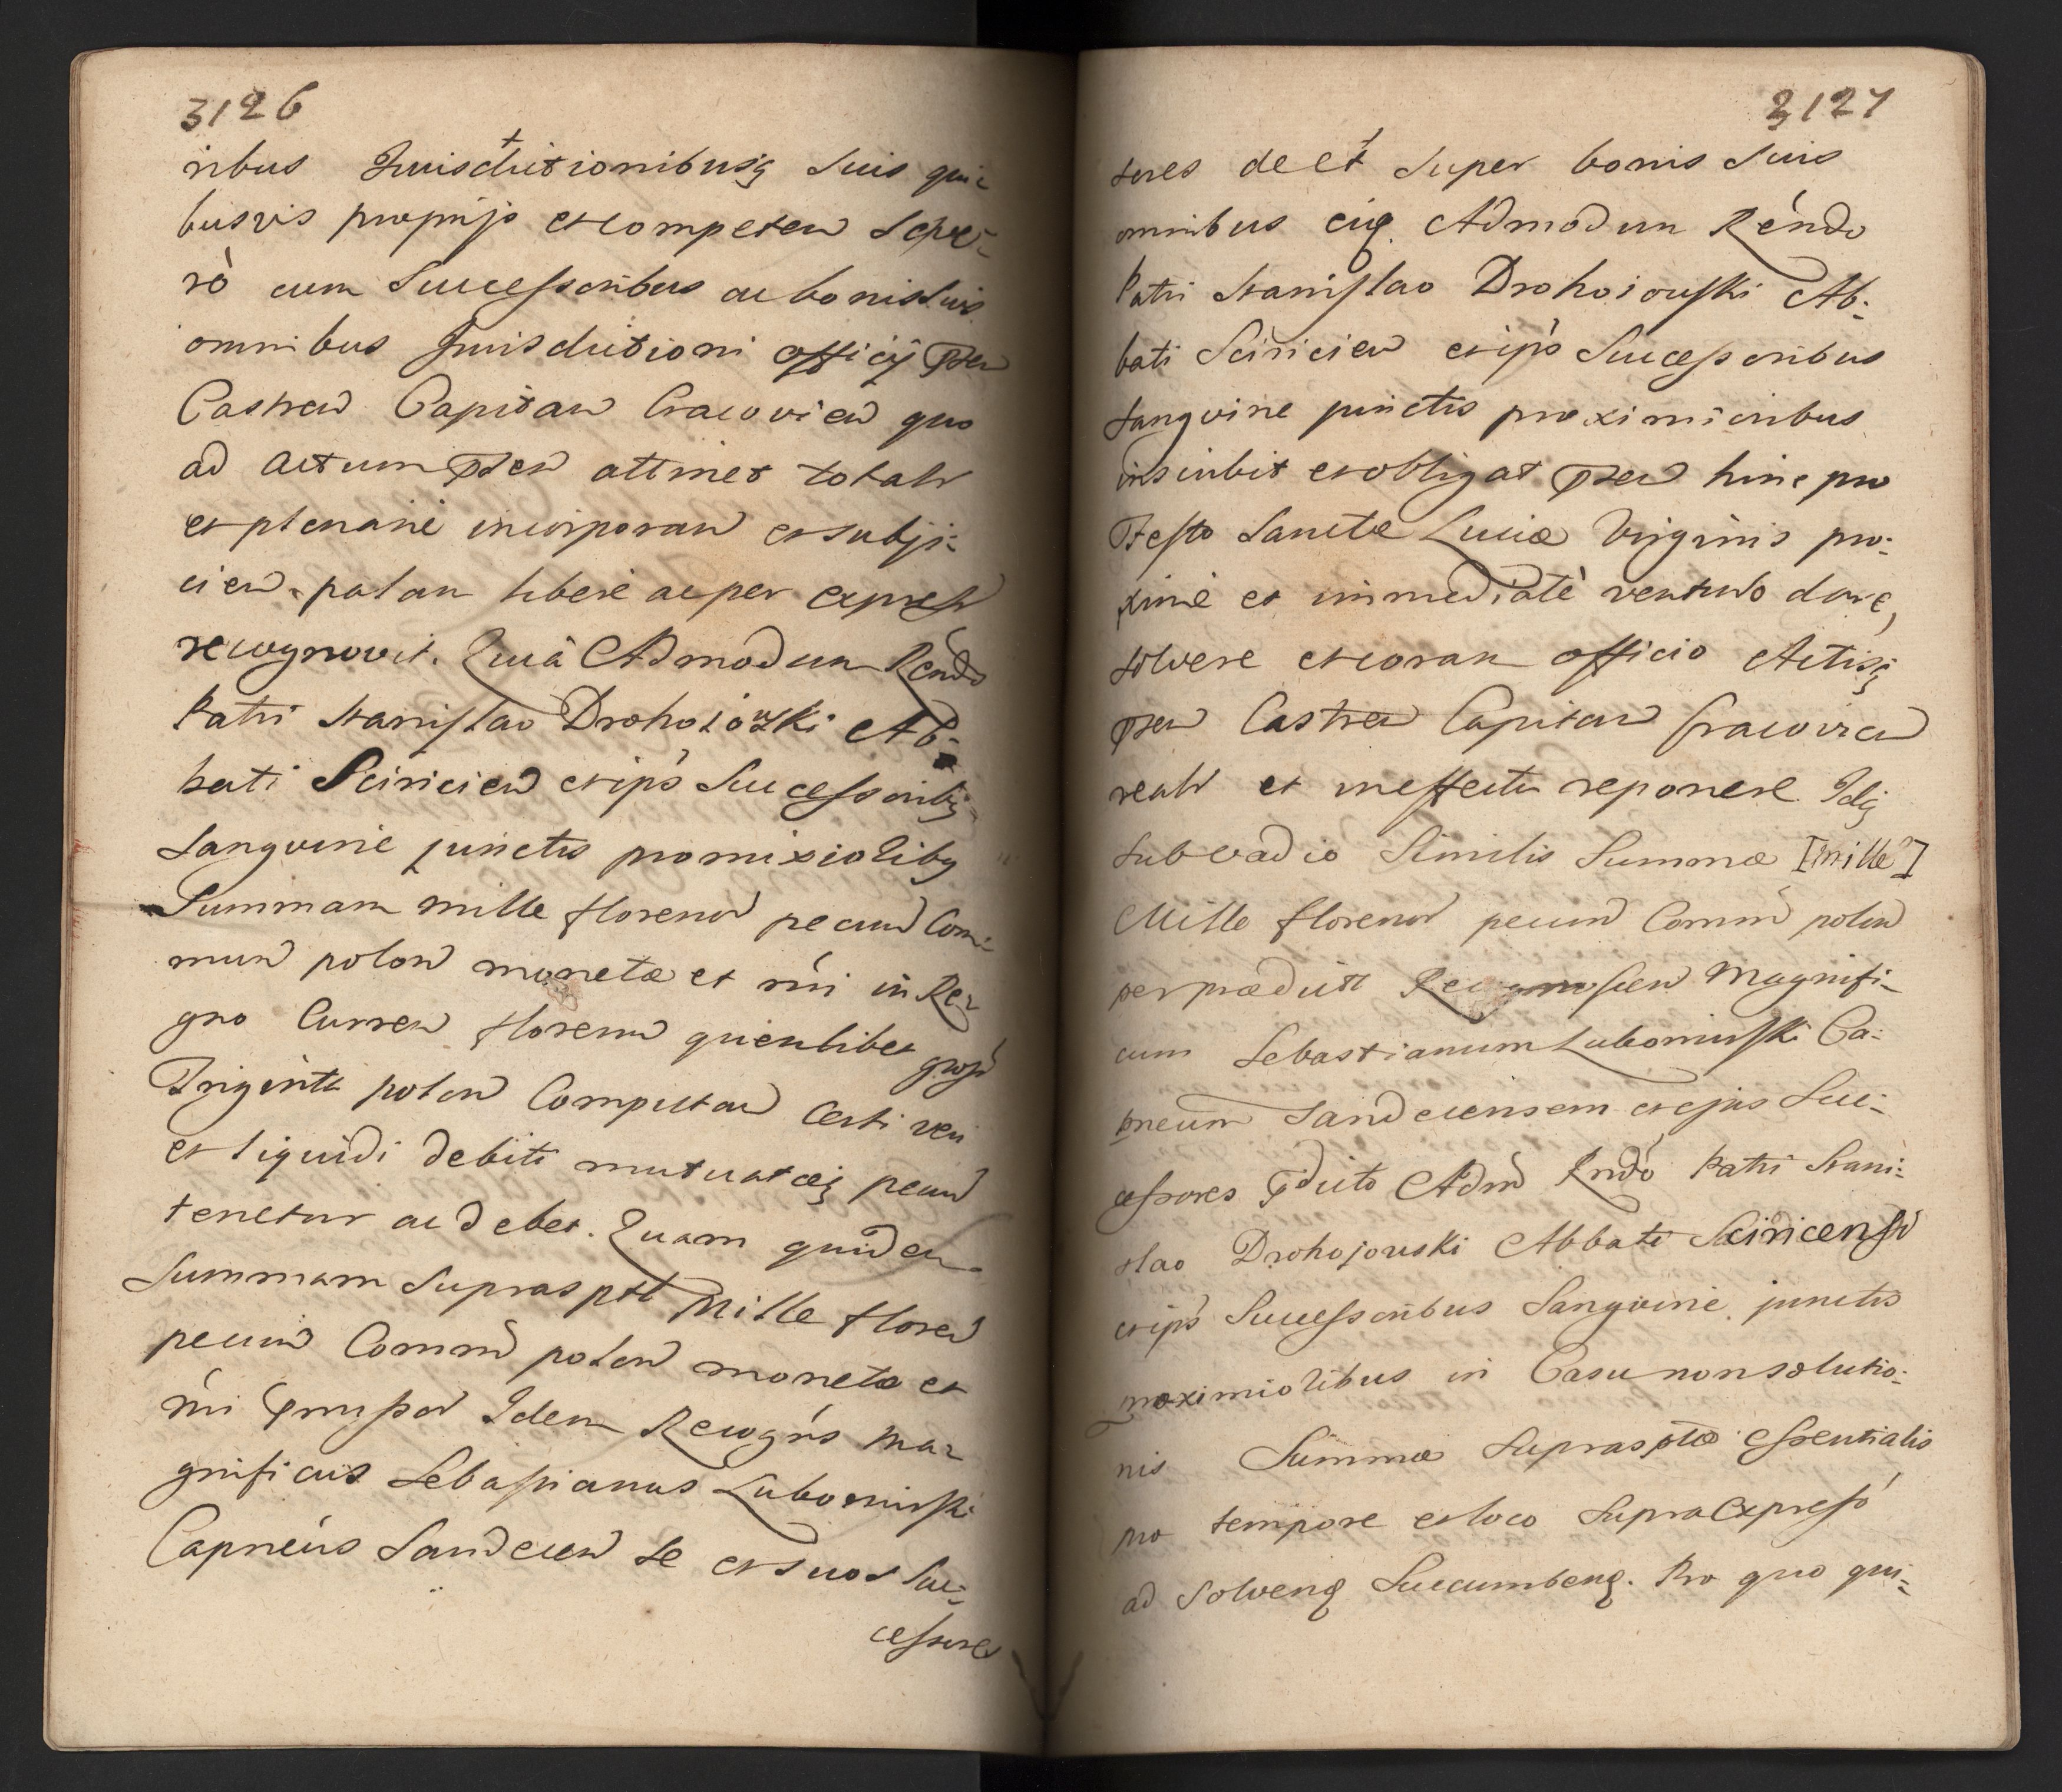 3126
ribus Jurisdictionibusq suis qui-
busvis proprijs et competen seq ve-
rò cum Successoribus ac bonis suis
omnibus Jurisdictioni officij pten
Castren Capitan Cracovien quo
ad actum pten attinet totalr
et plenariè incorporan et subji-
cien palam liberè ac per express
recognovit. Quia Admodum Rendo
Patri Stanislao Drohoiowski Ab-
bati Sciricien et ips Successoribq
Sangvine junctis promixiolibq
Summam mille florenor pecun Com-
mun polon moneta et nri in Re-
gno Curren florenu quemlibet gross
Triginta polon Computan Certi veri
et liquidi debiti mutuatæq pecun
tenetur ac debet. Quam quidem
Summam supraspttt Mille floren
pecun Commun polon moneta et
nri pmissor Idem Recogns Ma-
gnificus Sebastianus Lubomirski
Capneus Sandecen se et suos Suc-
cessores
3127
sores de et super bonis suis
omnibus eiq Admodum Rendo
Patri Stanislao Drohoiowski Ab-
bati Sciricien et ips Successoribus
Sangvine junctis proximioribus
inscribit et obligat pten hinc pro
Festo Sanctæ Luciæ Virginis pro-
ximè et immediatè venturo dare,
solvere et coram officio Actisq
pten Castren Capitan Cracovien
realr et in effectu reponere. Idq
sub vadio Similis Summæ [mille]
Mille florenor pecun Comm polon
per prædictt Recognoscen Magnifi-
cum Sebastianum Lubomirski Ca-
pneum Sandecensem et ejus Suc-
cessores pdicto Admd Rndo Patri Stani-
slao Drohojowski Abbati Sciricensi
et ips Successoribus Sangvine junctis
proximiolibus in Casu non solutio-
nis Summæ supraspttæ essentialis
pro tempore et loco supra expresso
ad solvend Succumbend. Pro quo qui-